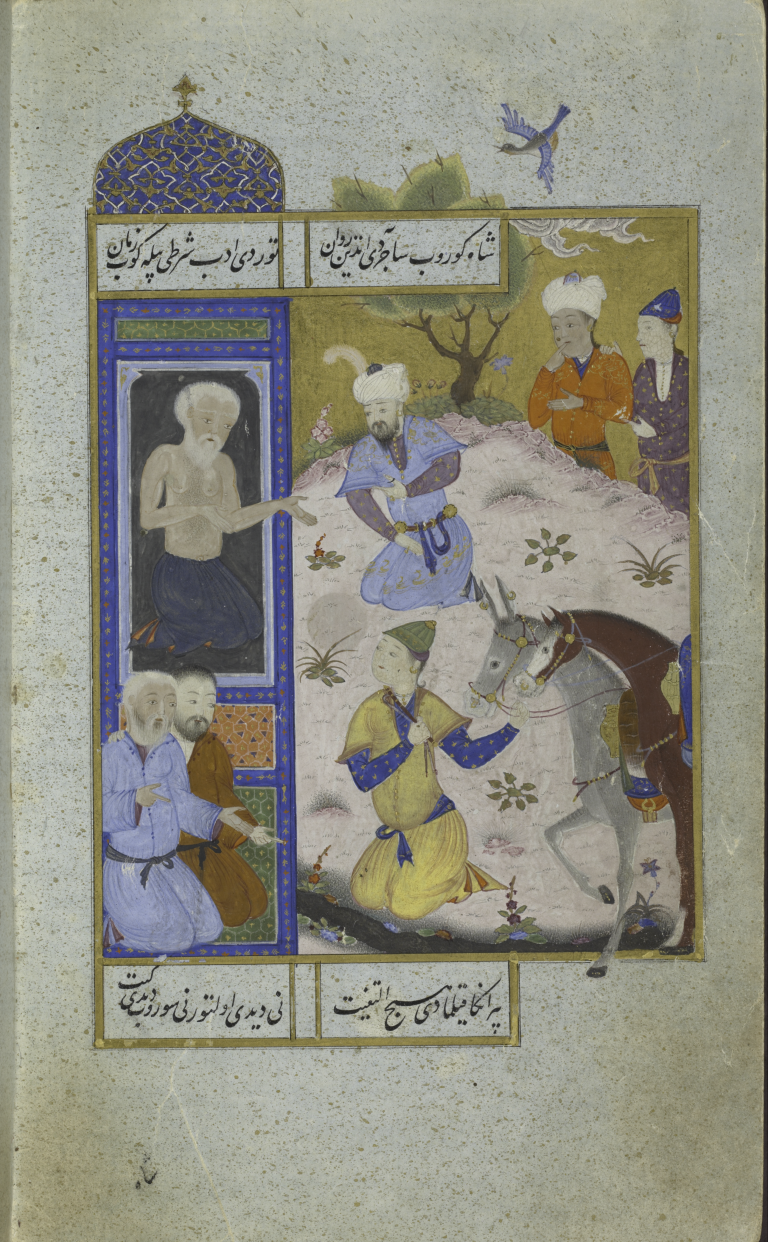 شاه کوروب ساجردی اندین روان
توردی ادب شرطی بیله کوب زمان
پیر انکا قیلمادی هیچ التفیت
نی دیدی اولتور نی سوروب دیدی کیت
شاه